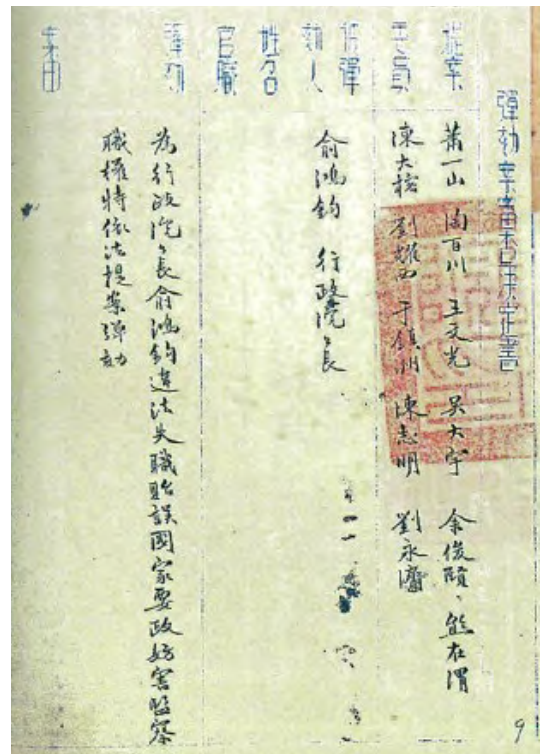 彈劾案審查決定書
提案
蕭一山 陶百川 王文光 吳大宇 余俊賢、熊在渭
委員
陳大榕 劉耀西 于鎮洲 陳志明 劉永濟
被彈
劾人
俞鴻鈞 行政院々長
姓名
官職
彈劾
為行政院々長俞鴻鈞違法失職貽誤國家要政妨害監察
職權特依法提案彈劾
案由
9